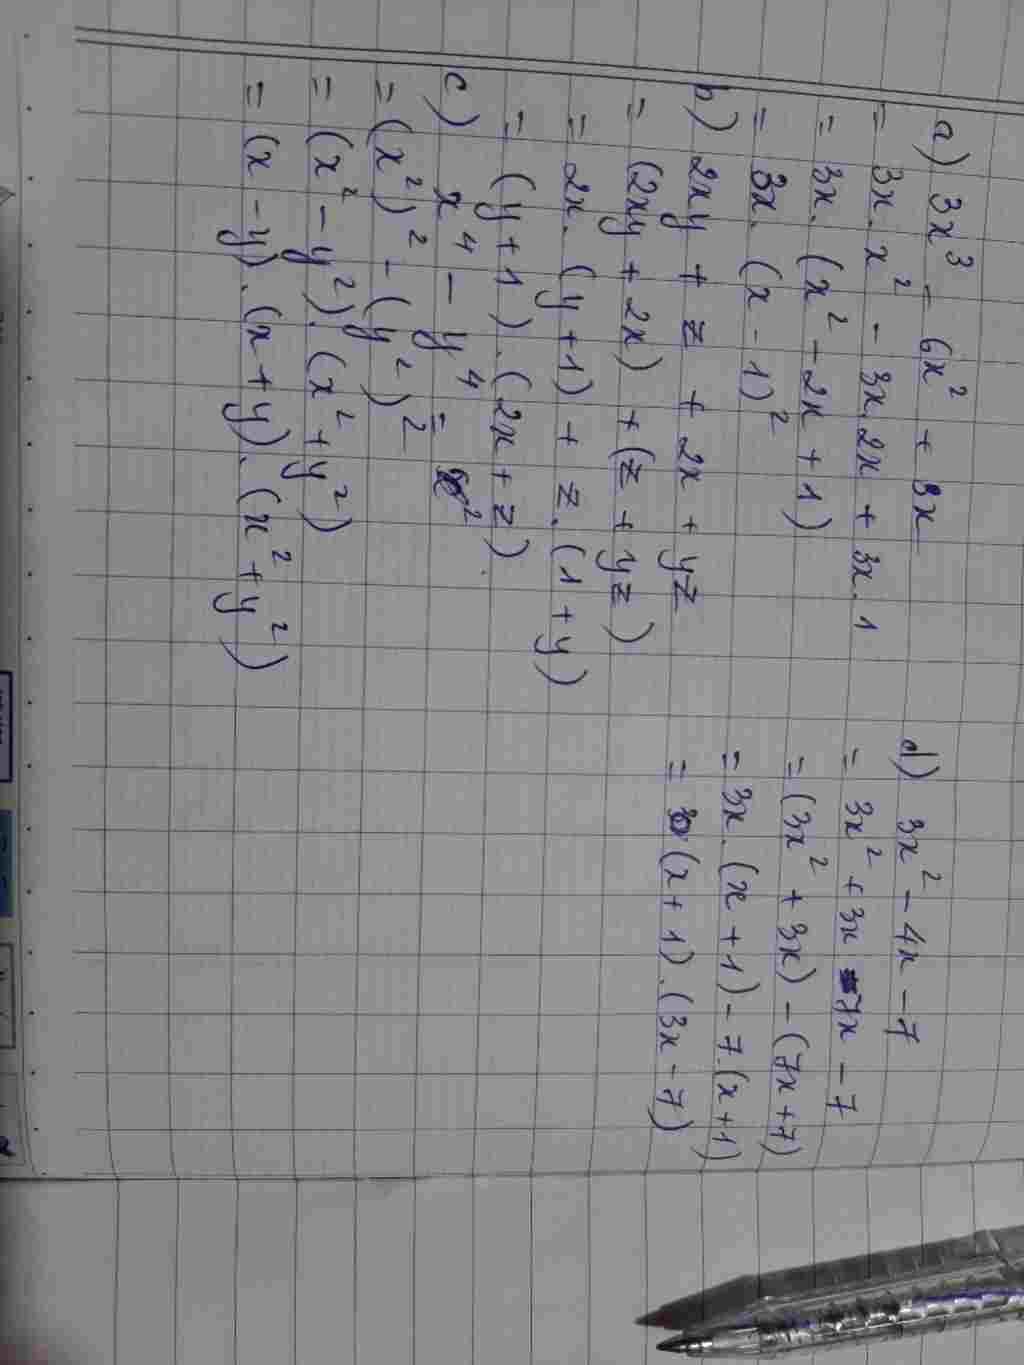 a) 3x³ - 6x² + 3x
= 3x. x² - 3x.2x + 3x.1
= 3x. (x² - 2x + 1)
= 3x. (x - 1)²
b) 2xy + z + 2x + yz
= (2xy + 2x) + (z + yz)
= 2x. (y+1) + z. (1 + y)
= (y+1).(2x + z).
c) x⁴ - y⁴ =
= (x²)² - (y²)²
= (x² - y²). (x² + y²)
= (x - y). (x + y). (x² + y²)
d) 3x² - 4x - 7
= 3x² + 3x - 7x - 7
= (3x² + 3x) - (7x + 7)
= 3x. (x + 1) - 7.(x+1)
= (x+1).(3x - 7)